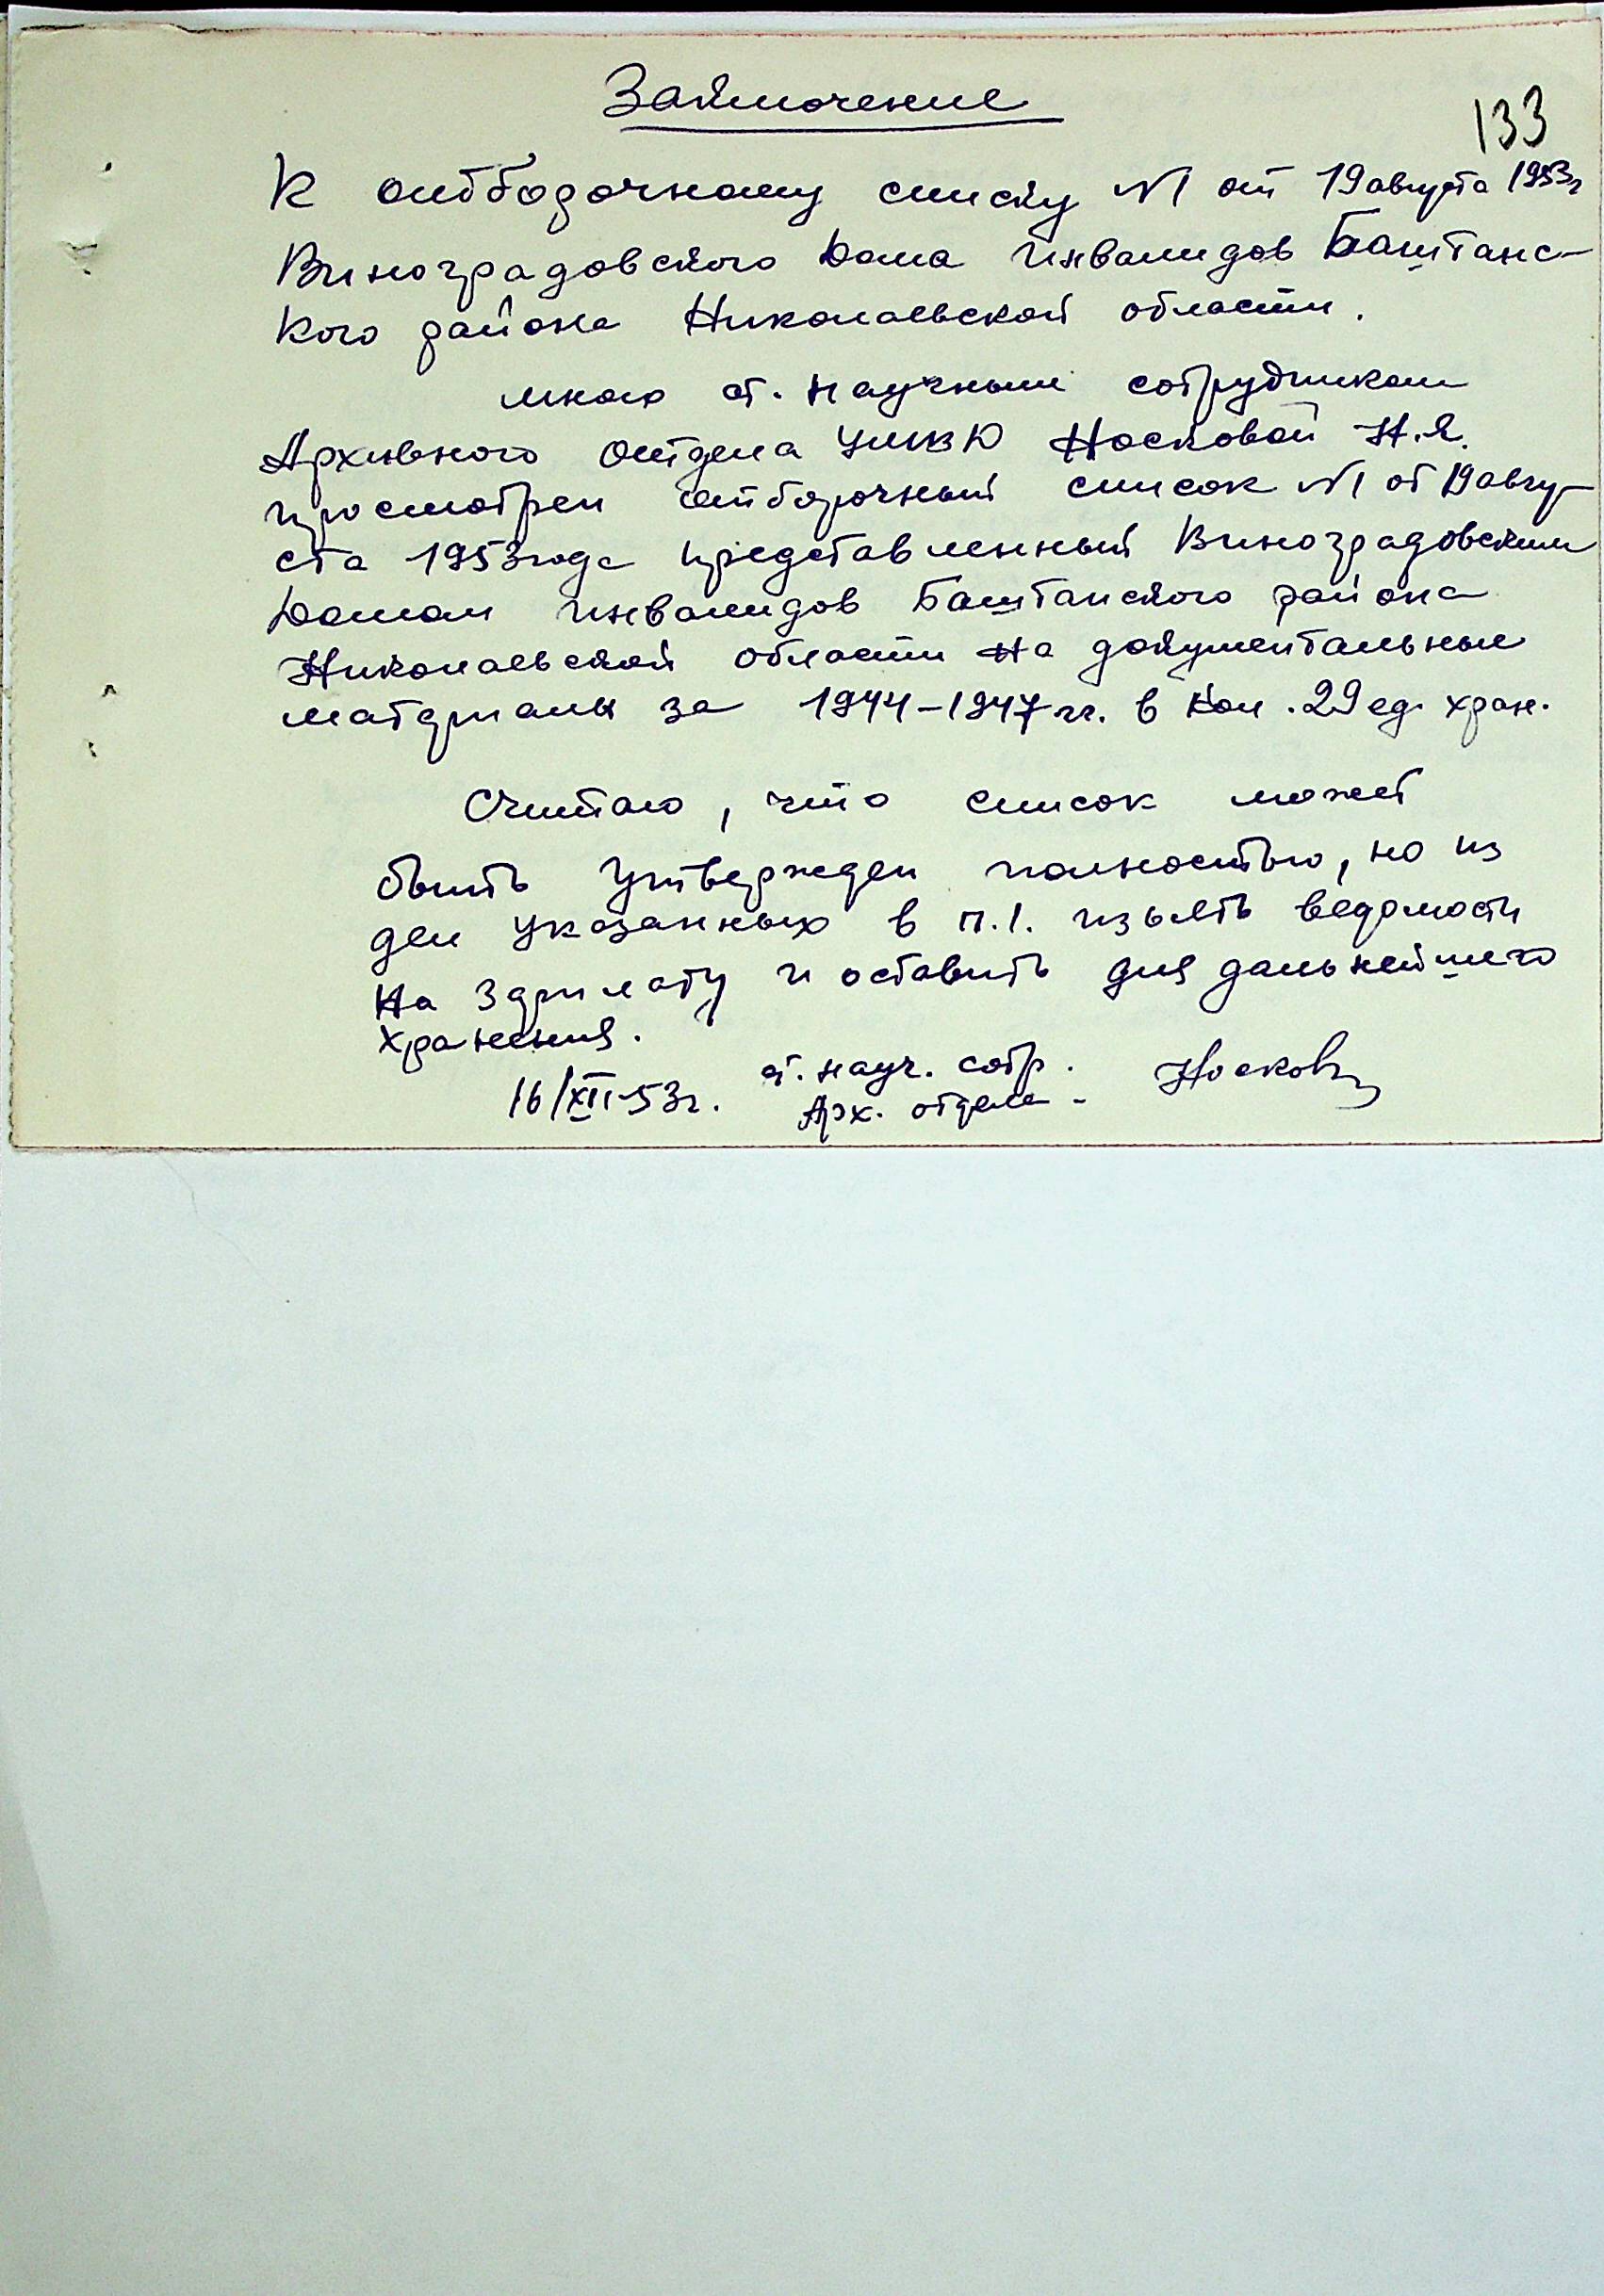 Заключение
133
К отборочному списку №1 от 19 августа 1953г
Виноградовского Дома инвалидов Баштанс-
кого района Николаевской области.
мною ст. научным сотрудником
Архивного отдела УМВД Носковой Н.Я.
просмотрен отборочный список №1 от 19 авгу-
ста 1953 года представленный Виноградовским
Домом инвалидов Баштанского района
Николаевской области на документальные
материалы за 1944-1947 гг. в кол. 29 ед. хран.
Считаю, что список может
быть утвержден полностью, но из
дел указанных в п.1. изъять ведомости
на зарплату и оставить для дальнейшего
хранения.
16/XII-53г. ст. науч. сотр. Носкова
Арх. отдела -